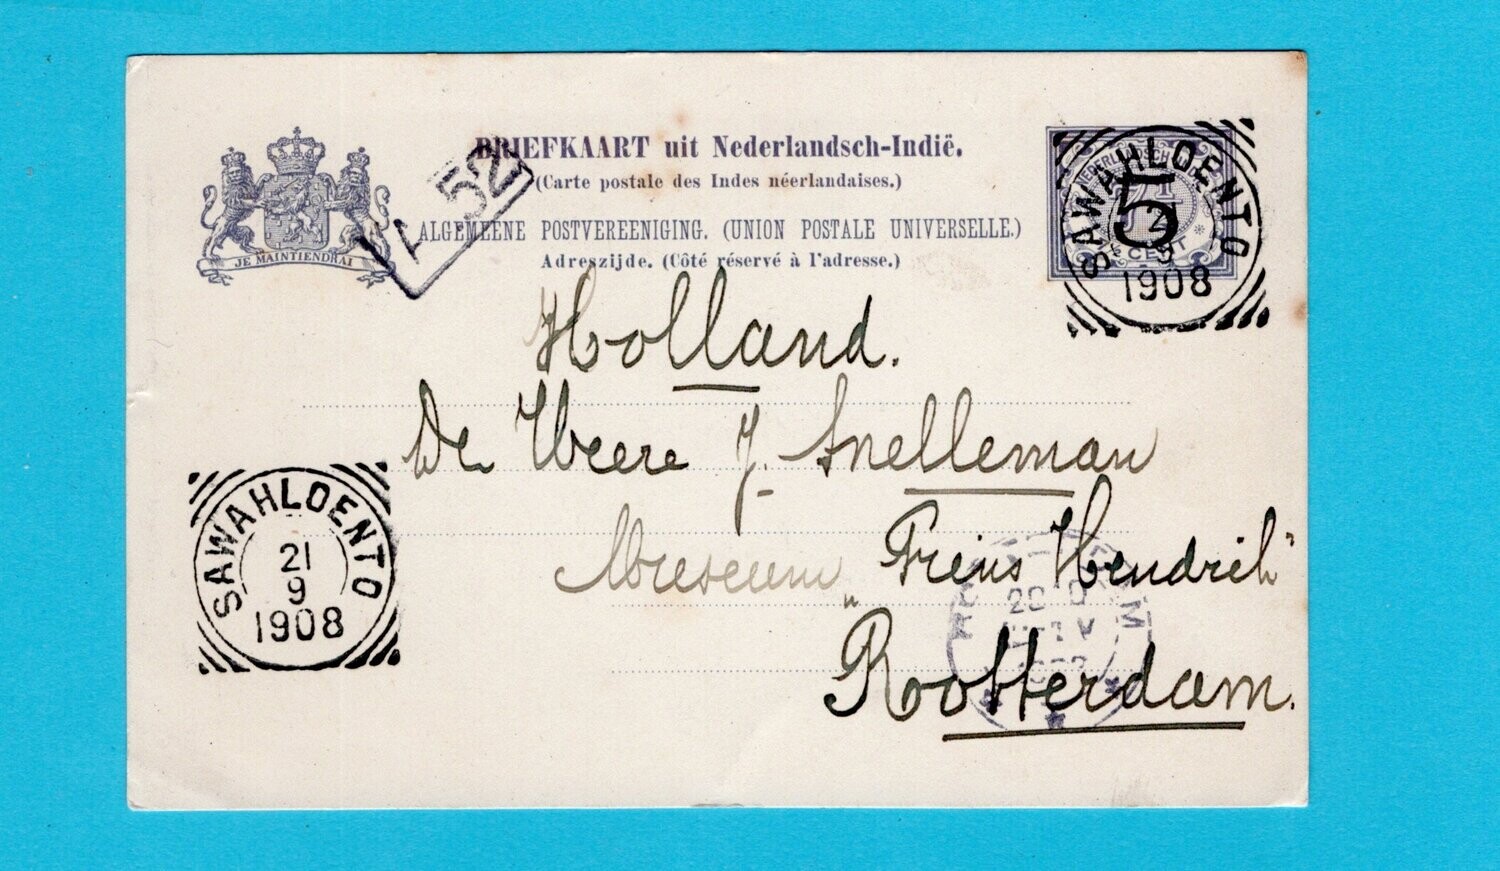 BRIEFKAART uit Nederlandsch-Indië.
(Carte postale des Indes néerlandaises.)
ALGEMEENE POSTVEREENIGING. (UNION POSTALE UNIVERSELLE.)
Adreszijde. (Côté réservé à l'adresse.)
JE MAINTIENDRAI
52
NEDERLANDSCH
5
CENT
SAWAHLOENTO
9
1908
Holland.
De Weere J. Snelleman
Museum „Prins Hendrik"
Rotterdam.
SAWAHLOENTO
21
9
1908